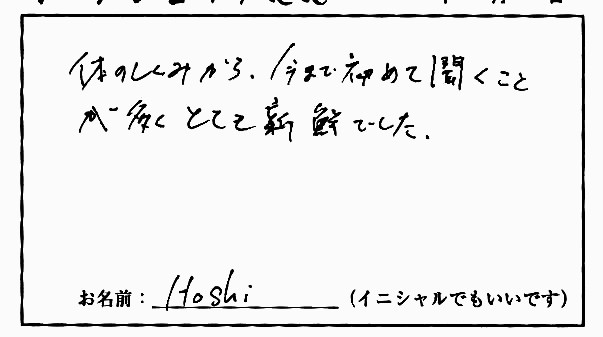 体のしくみから、今まで初めて聞くこと
が多くとても新鮮でした。
お名前：Hoshi（イニシャルでもいいです）